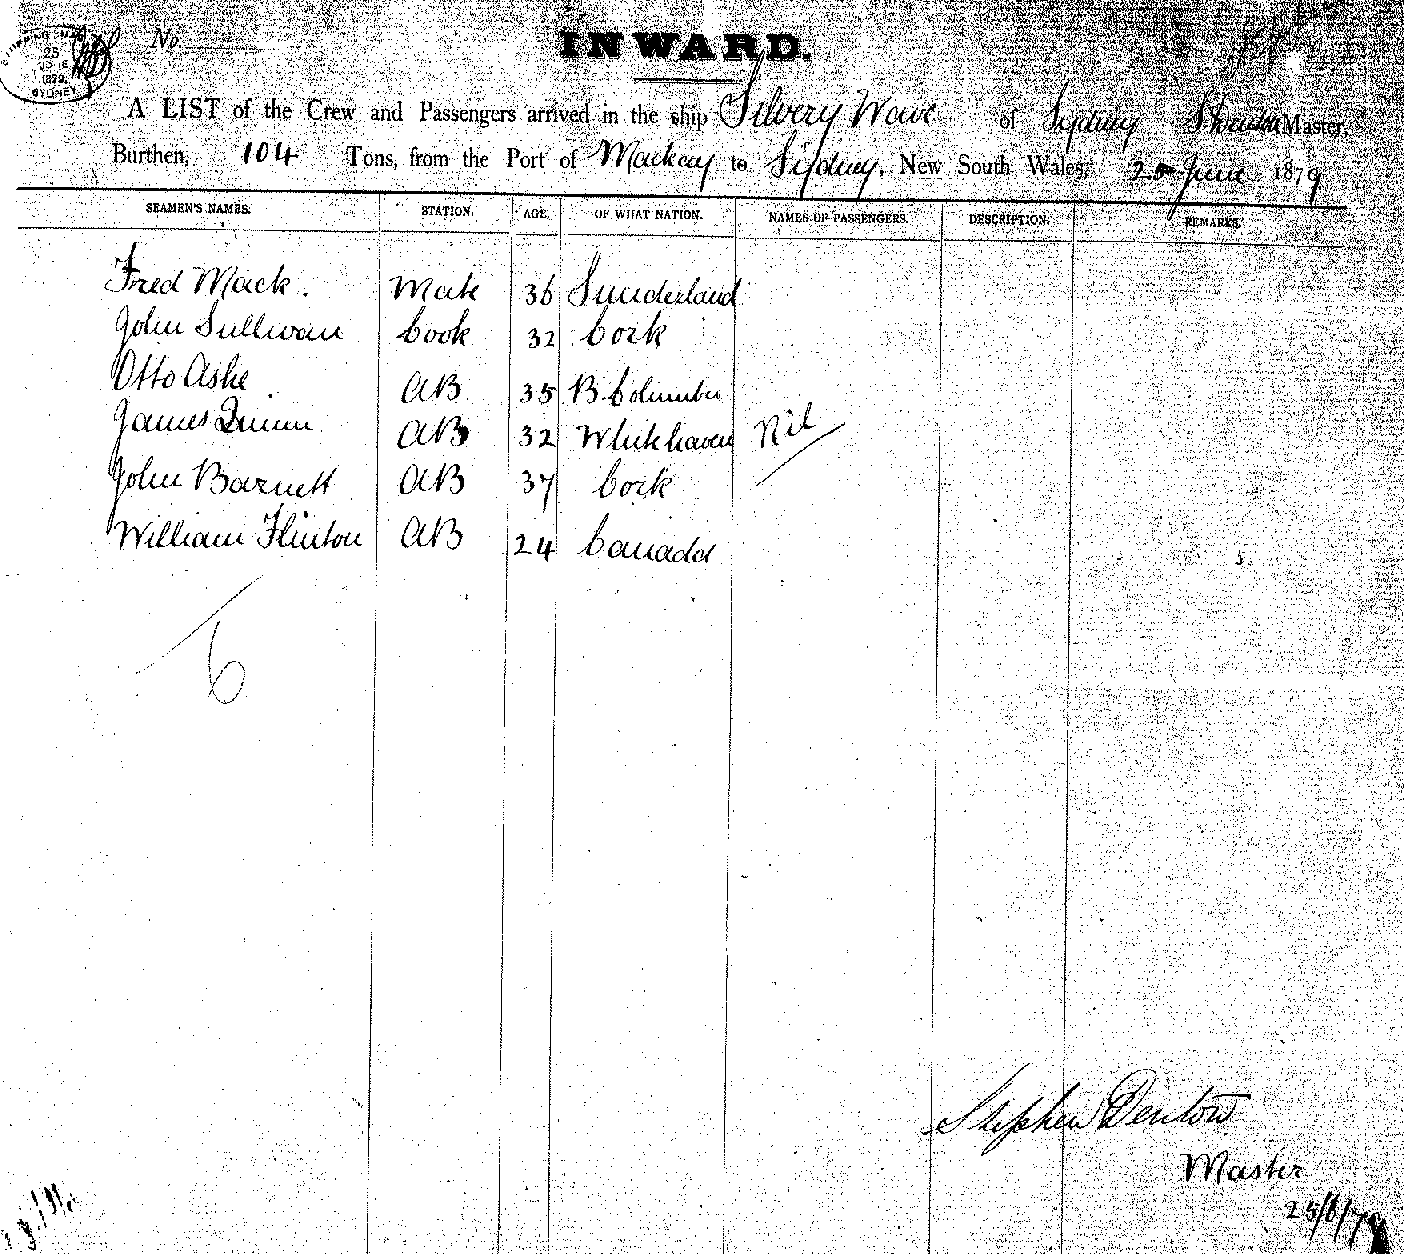 SHIPPING MAS
25
1879.
SYDNEY
No
INWARD.
A LIST of the Crew and Passengers arrived in the ship Silvery Wave of Sydney Master,
Burthen, 104 Tons, from the Port of Mackay to Sydney, New South Wales, 25 June 1879
SEAMEN'S NAMES. STATION. AGE. OF WHAT NATION. NAMES OF PASSENGERS. DESCRIPTION. REMARKS.
Fred Mack. Mate 36 Sunderland
John Sullivan Cook 32 Cork
Otto Ashe AB 35 B Columbia
James Quinn AB 32 Whitehaven Nil
John Barnett AB 37 Cork
William Flinton AB 24 Canada
6
Stephen Denton
Master
25/6/79